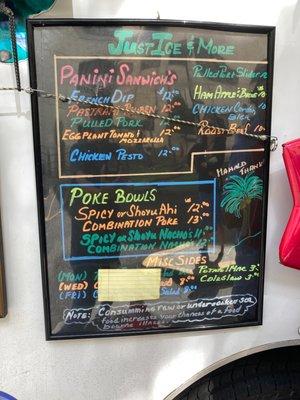 JustIce & More
Panini Sandwich's
French Dip 12.00
Pastrami Reuben 12.00
Pulled Pork 12.00
Eggplant Tomato &
Mozzarella 12.00
Chicken Pesto 12.00
Pulled Pork Slider
Ham Apple & Brie
Chicken Cordon
Bleu
Roast Beef 10
Poke Bowls
Spicy or Shoyu Ahi 12.00
Combination Poke 13.00
Spicy or Shoyu Nacho's 11.00
Combination Nachos 12.00
Misc Sides
(Mon)
(Wed)
(Fri) Salad 8.00
Potato/Mac 3.
Coleslaw 3.
Mahalo
Note: Consumming raw or undercooked
food increases your chances of a food
bourne illness